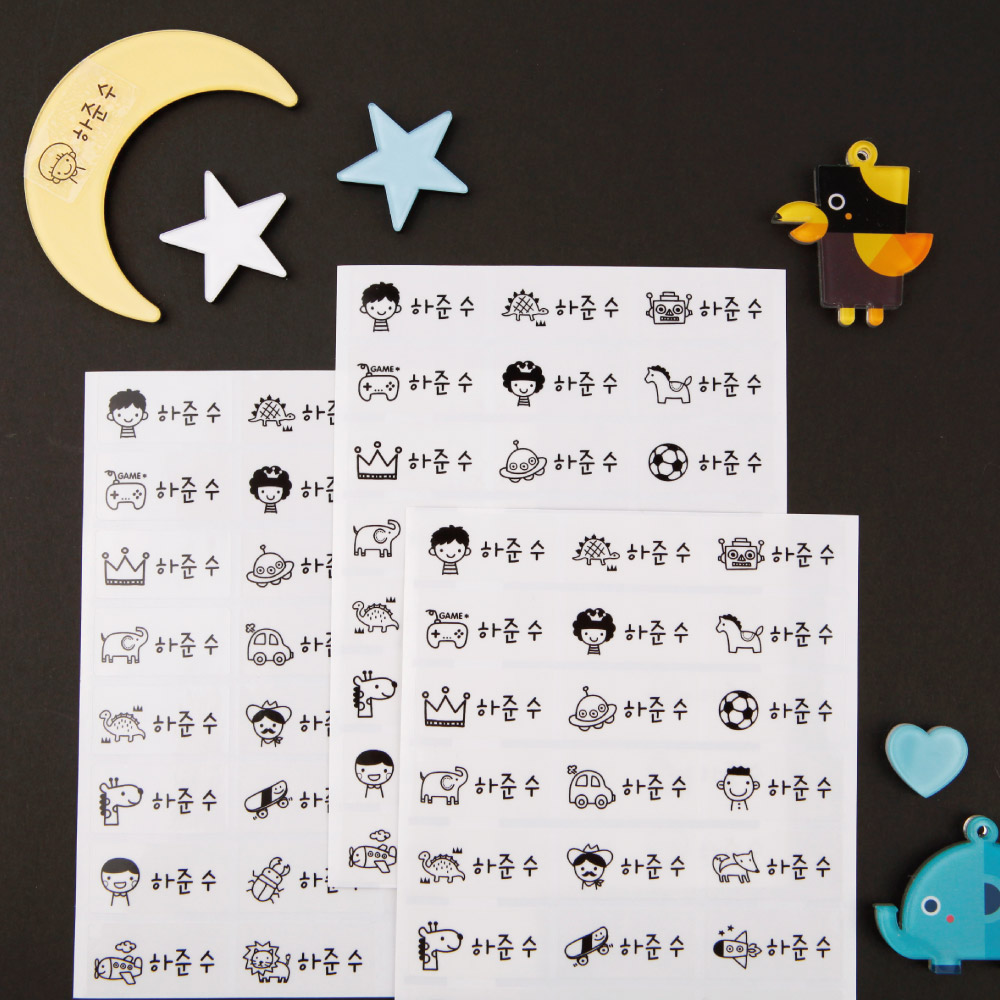 하준 수
하준 수 하준 수 하준 수
GAME
하준 수 하준 수 하준 수
하준 수 하준 수 하준 수
하준 수 하
GAME
하준 수 하
하준 수 하
하준 수 하
하준 수 하
하준 수 하
하준 수 하
하준 수 하준 수
하준 수 하준 수 하준 수
GAME
하준 수 하준 수 하준 수
하준 수 하준 수 하준 수
하준 수 하준 수 하준 수
하준 수 하준 수 하준 수
하준 수 하준 수 하준 수